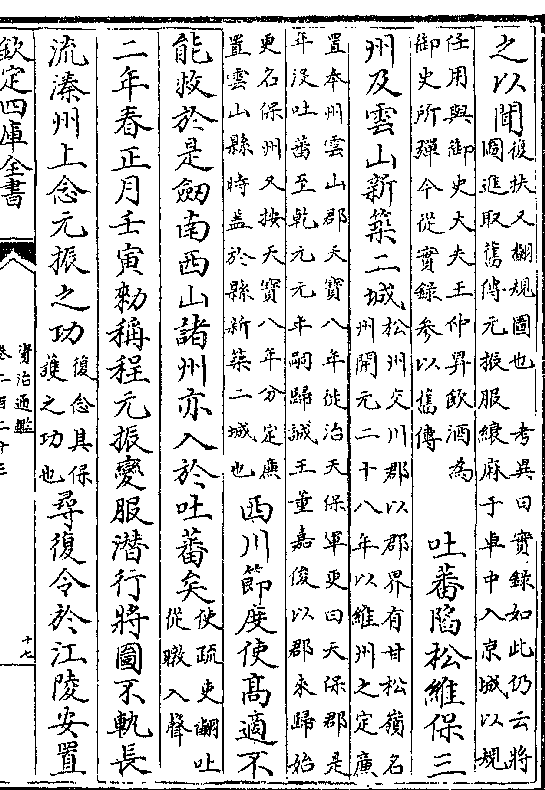 之以聞復扶又翻規圖也　考異曰實錄如此仍云將
圖進取舊傳元振服縗麻于車中入京城以規
任用與御史大夫王仲昇飲酒為
御史所彈今從實錄參以舊傳
吐蕃陷松維保三
州及雲山新築二城
松州交川郡以郡界有甘松嶺名
州開元二十八年以維州之定廣
置奉州雲山郡天寶八年徙治天保軍更曰天保郡是
年没吐蕃至乾元元年嗣歸誠王董嘉俊以郡來歸始
更名保州又按天寶八年分定廉
置雲山縣時蓋於縣新築二城也
西川節度使髙適不
能救於是劒南西山諸州亦入於吐蕃矣
使疏吏翻吐
從暾入聲
二年春正月壬寅勅稱程元振變服潛行將圖不軌長
流溱州上念元振之功
復念其保
護之功也
尋復令於江陵安置
欽定四庫全書
資治通鑑
卷二百二十三
十七